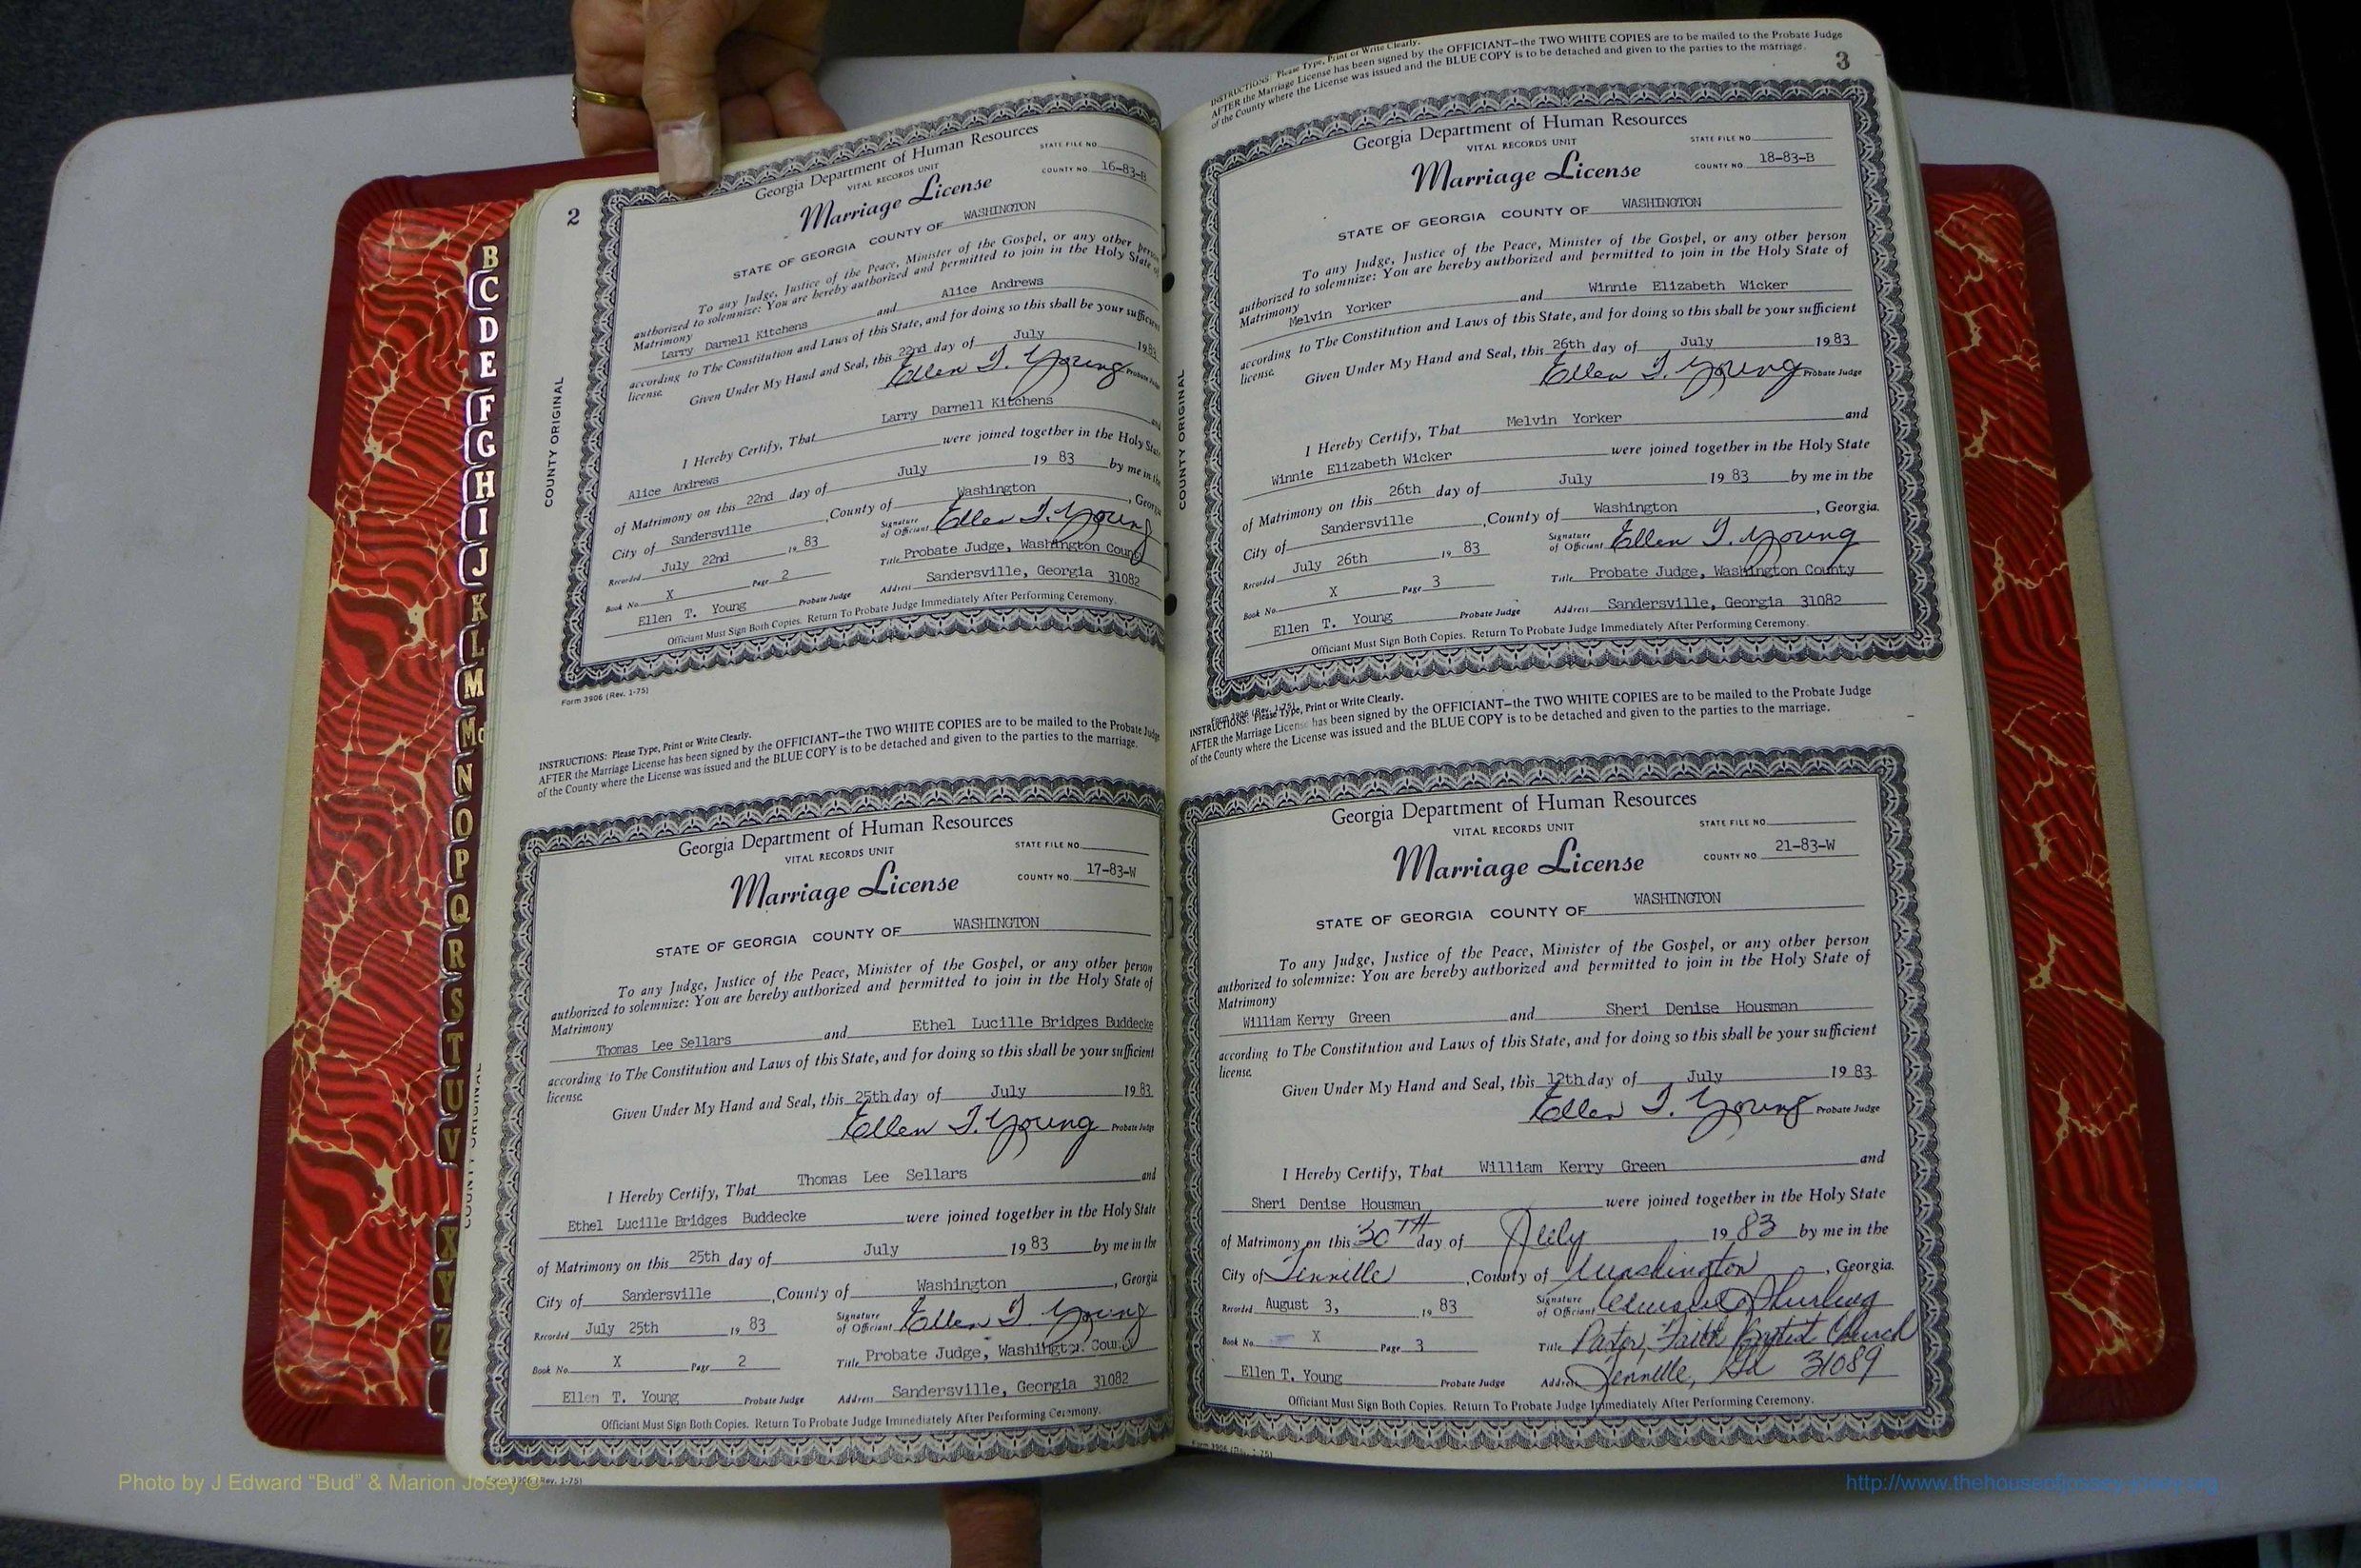 2
B
C
D
E
F
G
H
I
J
K
L
M
Mc
N
O
P
Q
R
S
T
U
V
X
Y
Z
COUNTY ORIGINAL
Georgia Department of Human Resources
VITAL RECORDS UNIT
STATE FILE NO.
Marriage License
COUNTY NO. 16-83-B
STATE OF GEORGIA COUNTY OF WASHINGTON
To any Judge, Justice of the Peace, Minister of the Gospel, or any other person
authorized to solemnize: You are hereby authorized and permitted to join in the Holy State of
Matrimony
Larry Darnell Kitchens and Alice Andrews
according to The Constitution and Laws of this State, and for doing so this shall be your sufficient
license.
Given Under My Hand and Seal, this 22nd day of July 1983
Ellen T. Young Probate Judge
I Hereby Certify, That Larry Darnell Kitchens and
Alice Andrews were joined together in the Holy State
of Matrimony on this 22nd day of July 19 83 by me in the
City of Sandersville, County of Washington, Georgia
Recorded July 22nd 19 83 Signature of Officiant Ellen T. Young
Book No. X Page 2 Title Probate Judge, Washington County
Ellen T. Young Probate Judge Address Sandersville, Georgia 31082
Officiant Must Sign Both Copies. Return To Probate Judge Immediately After Performing Ceremony.
Form 3906 (Rev. 1-75)
INSTRUCTIONS: Please Type, Print or Write Clearly.
AFTER the Marriage License has been signed by the OFFICIANT—the TWO WHITE COPIES are to be mailed to the Probate Judge
of the County where the License was issued and the BLUE COPY is to be detached and given to the parties to the marriage.
COUNTY ORIGINAL
Georgia Department of Human Resources
VITAL RECORDS UNIT
STATE FILE NO.
Marriage License
COUNTY NO. 17-83-W
STATE OF GEORGIA COUNTY OF WASHINGTON
To any Judge, Justice of the Peace, Minister of the Gospel, or any other person
authorized to solemnize: You are hereby authorized and permitted to join in the Holy State of
Matrimony
Thomas Lee Sellars and Ethel Lucille Bridges Buddecke
according to The Constitution and Laws of this State, and for doing so this shall be your sufficient
license.
Given Under My Hand and Seal, this 25th day of July 1983
Ellen T. Young Probate Judge
I Hereby Certify, That Thomas Lee Sellars and
Ethel Lucille Bridges Buddecke were joined together in the Holy State
of Matrimony on this 25th day of July 19 83 by me in the
City of Sandersville, County of Washington, Georgia
Recorded July 25th 19 83 Signature of Officiant Ellen T. Young
Book No. X Page 2 Title Probate Judge, Washington County
Ellen T. Young Probate Judge Address Sandersville, Georgia 31082
Officiant Must Sign Both Copies. Return To Probate Judge Immediately After Performing Ceremony.
Form 3906 (Rev. 1-75)
INSTRUCTIONS: Please Type, Print or Write Clearly.
AFTER the Marriage License has been signed by the OFFICIANT—the TWO WHITE COPIES are to be mailed to the Probate Judge
of the County where the License was issued and the BLUE COPY is to be detached and given to the parties to the marriage.
3
COUNTY ORIGINAL
Georgia Department of Human Resources
VITAL RECORDS UNIT
STATE FILE NO.
Marriage License
COUNTY NO. 18-83-B
STATE OF GEORGIA COUNTY OF WASHINGTON
To any Judge, Justice of the Peace, Minister of the Gospel, or any other person
authorized to solemnize: You are hereby authorized and permitted to join in the Holy State of
Matrimony
Melvin Yorker and Winnie Elizabeth Wicker
according to The Constitution and Laws of this State, and for doing so this shall be your sufficient
license.
Given Under My Hand and Seal, this 26th day of July 1983
Ellen T. Young Probate Judge
I Hereby Certify, That Melvin Yorker and
Winnie Elizabeth Wicker were joined together in the Holy State
of Matrimony on this 26th day of July 19 83 by me in the
City of Sandersville, County of Washington, Georgia.
Recorded July 26th 19 83 Signature of Officiant Ellen T. Young
Book No. X Page 3 Title Probate Judge, Washington County
Ellen T. Young Probate Judge Address Sandersville, Georgia 31082
Officiant Must Sign Both Copies. Return To Probate Judge Immediately After Performing Ceremony.
Form 3906 (Rev. 1-75)
INSTRUCTIONS: Please Type, Print or Write Clearly.
AFTER the Marriage License has been signed by the OFFICIANT—the TWO WHITE COPIES are to be mailed to the Probate Judge
of the County where the License was issued and the BLUE COPY is to be detached and given to the parties to the marriage.
Georgia Department of Human Resources
VITAL RECORDS UNIT
STATE FILE NO.
Marriage License
COUNTY NO. 21-83-W
STATE OF GEORGIA COUNTY OF WASHINGTON
To any Judge, Justice of the Peace, Minister of the Gospel, or any other person
authorized to solemnize: You are hereby authorized and permitted to join in the Holy State of
Matrimony
William Kerry Green and Sheri Denise Housman
according to The Constitution and Laws of this State, and for doing so this shall be your sufficient
license.
Given Under My Hand and Seal, this 12th day of July 1983
Ellen T. Young Probate Judge
I Hereby Certify, That William Kerry Green and
Sheri Denise Housman were joined together in the Holy State
of Matrimony on this 30TH day of July 19 83 by me in the
City of Tennille, County of Washington, Georgia.
Recorded August 3, 19 83 Signature of Officiant
Book No. X Page 3 Title Pastor, Faith Baptist Church
Ellen T. Young Probate Judge Address Tennille, Ga 31089
Officiant Must Sign Both Copies. Return To Probate Judge Immediately After Performing Ceremony.
Form 3906 (Rev. 1-75)
Photo by J Edward "Bud" & Marion Josey ©
http://www.thehouseofjossey-josey.org